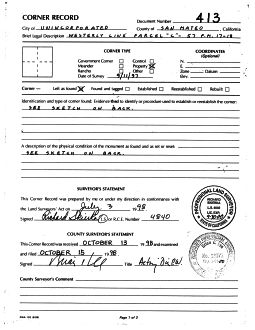 CORNER RECORD
Document Number 413
City of UNINCORPORATED County of SAN MATEO, California
Brief Legal Description WESTERLY LINE PARCEL "C" - 57 P.M. 17-18
CORNER TYPE
COORDINATES
(Optional)
Government Corner Control
Meander Property
Rancho Other
Date of Survey
N.
E.
Zone Datum
Elev.
Corner — Left as found Found and tagged Established Reestablished Rebuilt
Identification and type of corner found: Evidence used to identify or procedure used to establish or reestablish the corner:
SEE SKETCH ON BACK.
A description of the physical condition of the monument as found and as set or reset:
SEE SKETCH ON BACK.
SURVEYOR'S STATEMENT
This Corner Record was prepared by me or under my direction in conformance with
the Land Surveyors' Act on July 3 1998
Signed L.S. or R.C.E. Number 4840
PROFESSIONAL LAND SURVEYOR
COUNTY SURVEYOR'S STATEMENT
This Corner Record was received OCTOBER 13 1998 and examined
and filed OCTOBER 15 1998
Signed Title
County Surveyor's Comment
Page 1 of 2